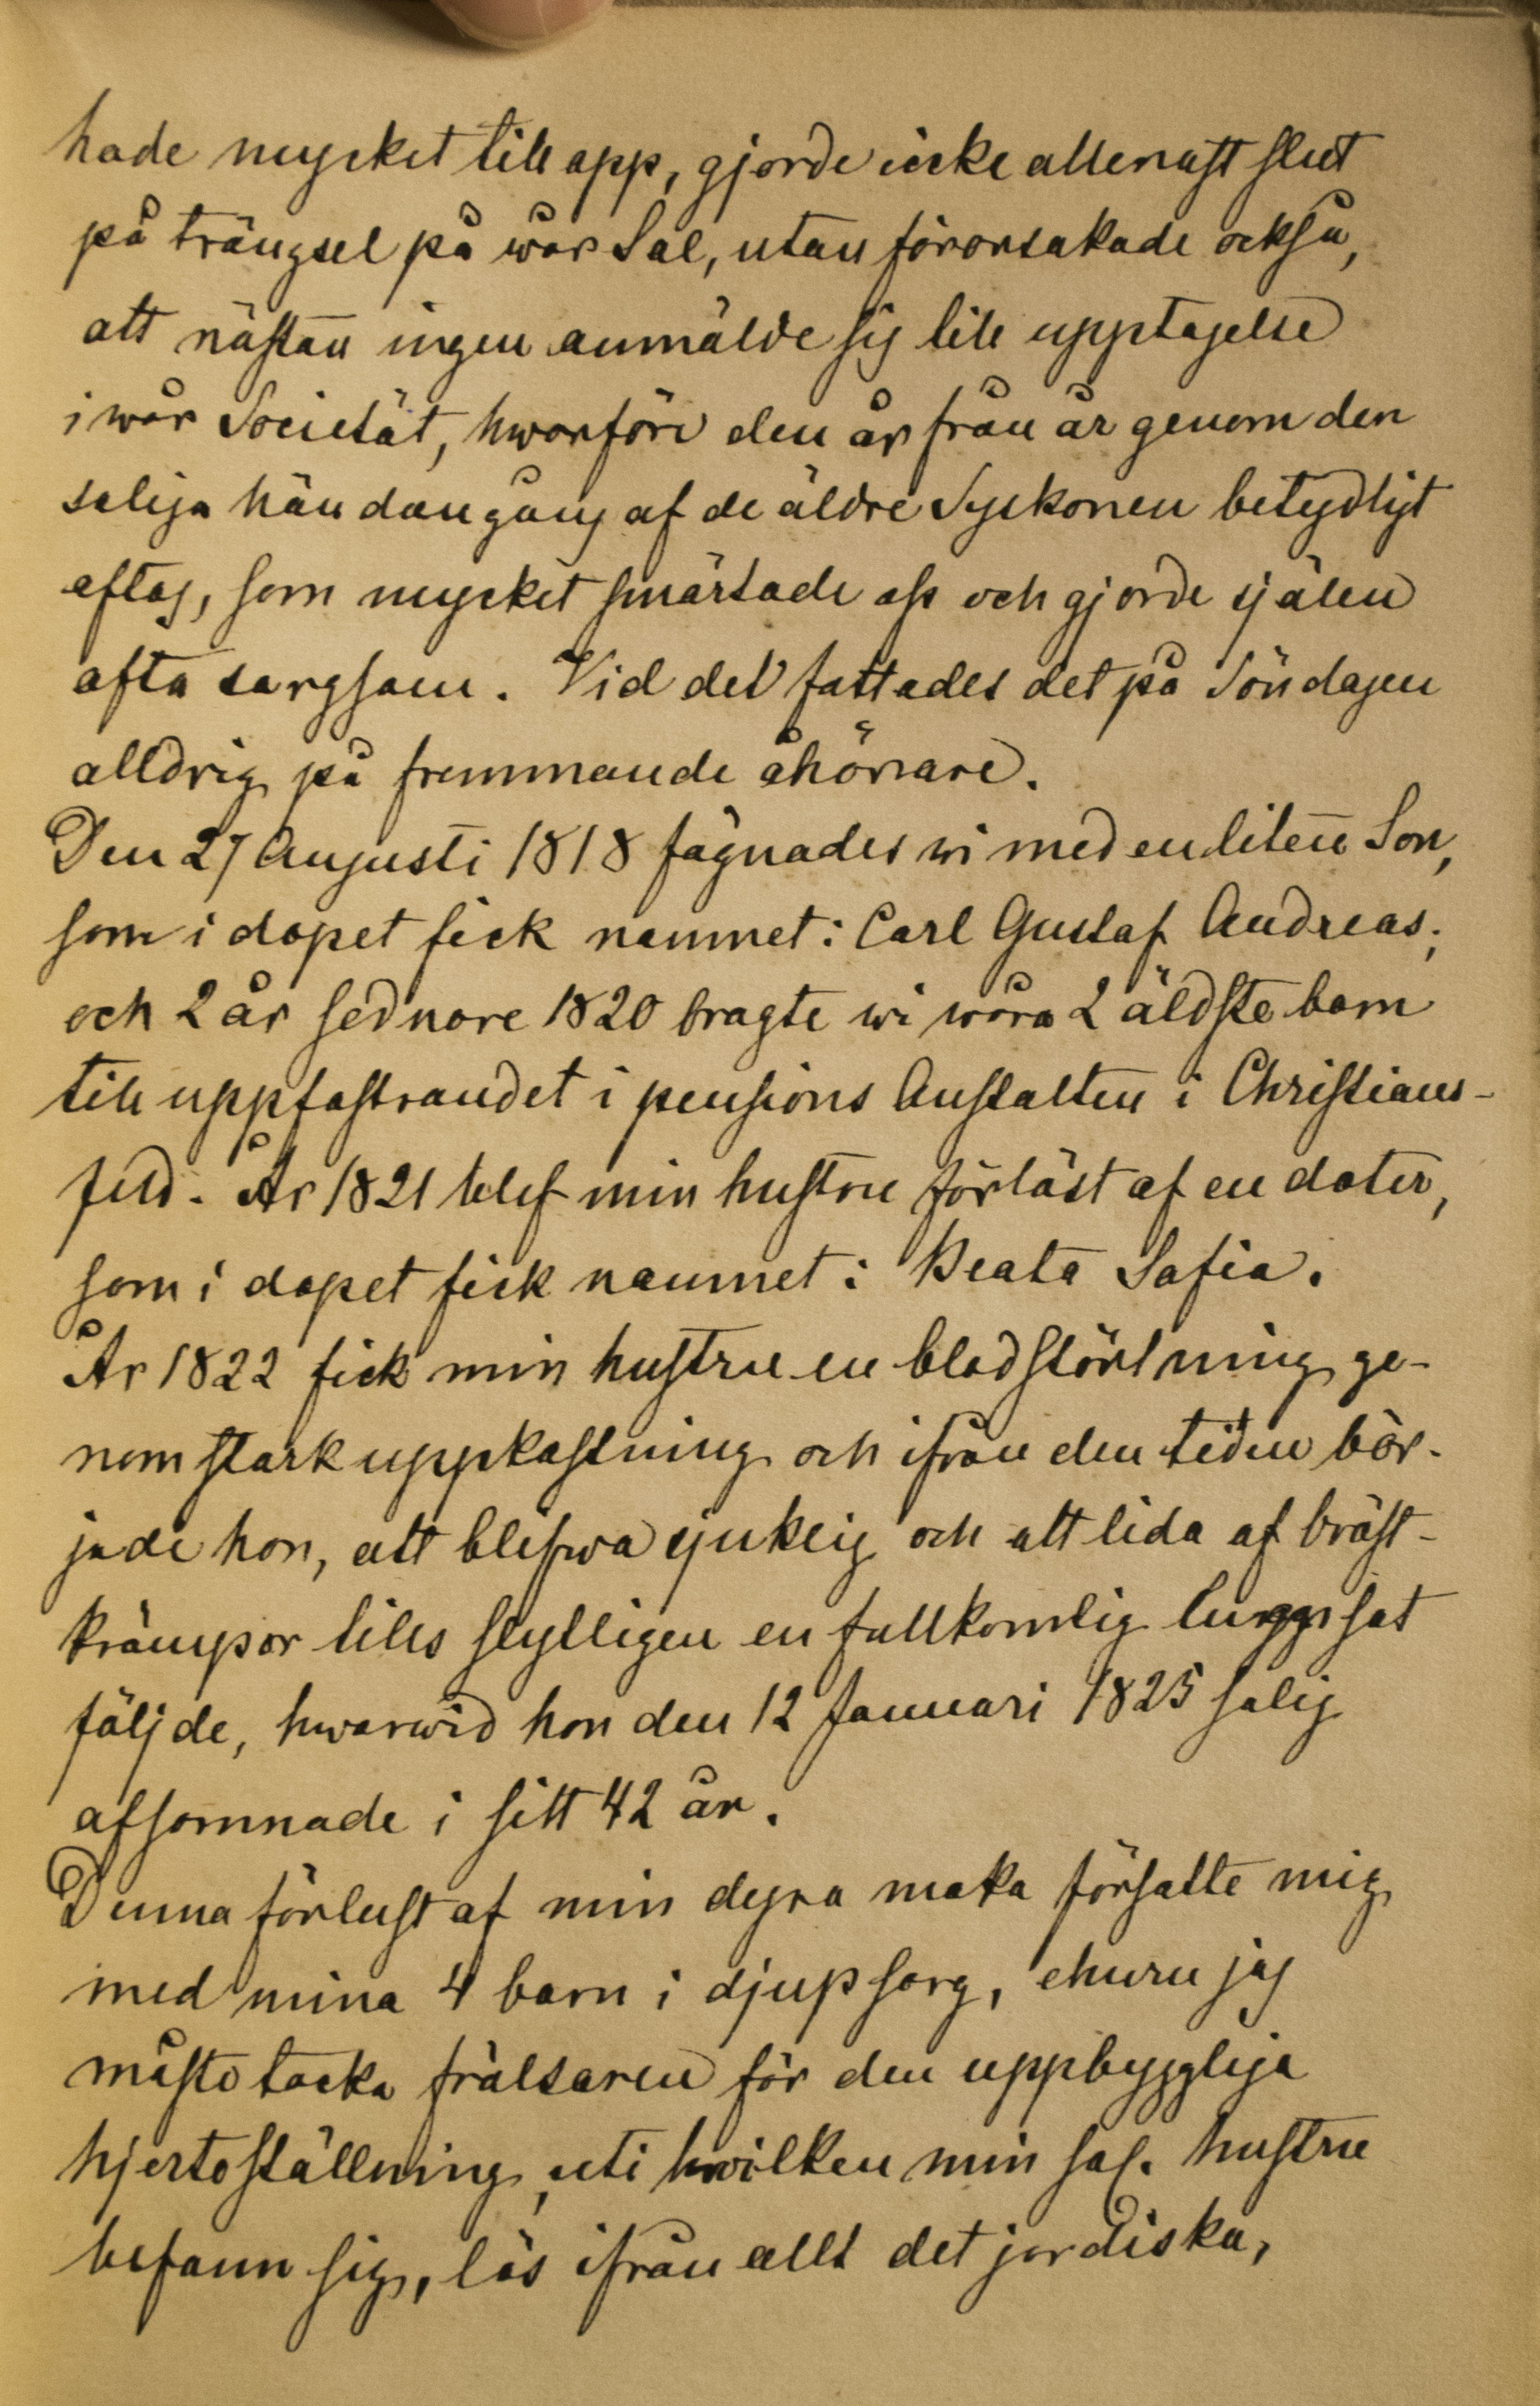 hade mycket till opp, gjorde icke allenast slut
på trängsel på wår Sal, utan förorsakade också,
att nästan ingen anmälde sig till upptagelse
i wår Societät, hwarföre den år från år genom den
saliga händangång af de äldre Syskonen betydligt
aftog, som mycket smärtade oss och gjorde själen
ofta sorgsam. Vid det fattades det på Söndagen
alldrig på fremmande åhörare.
Den 27 Augusti 1818 fägnades wi med en liten Son,
som i dopet fick namnet: Carl Gustaf Andreas;
och 2 år sednare 1820 bragte wi wåra 2 äldste barn
till uppfostrandet i pensions Anstalten i Christians-
feld. År 1821 blef min hustru förlöst af en doter,
som i dopet fick namnet: Beata Sofia.
År 1822 fick min hustru en blodstörtning ge-
nom stark uppkastning och ifrån den tiden bör-
jade hon, att blifwa sjuklig och att lida af bröst-
krämpor tills slylligen en fullkomlig lungsot
följde, hwarwid hon den 12 Januari 1825 salig
afsomnade i sitt 42 år.
Denna förlust af min dyra maka försatte mig
med mina 4 barn i djup sorg, ehuru jag
måste tacka frälsaren för den uppbyggliga
hjerteställning, uti hwilken min sal. hustru
befann sig, lös ifrån allt det jordiska,